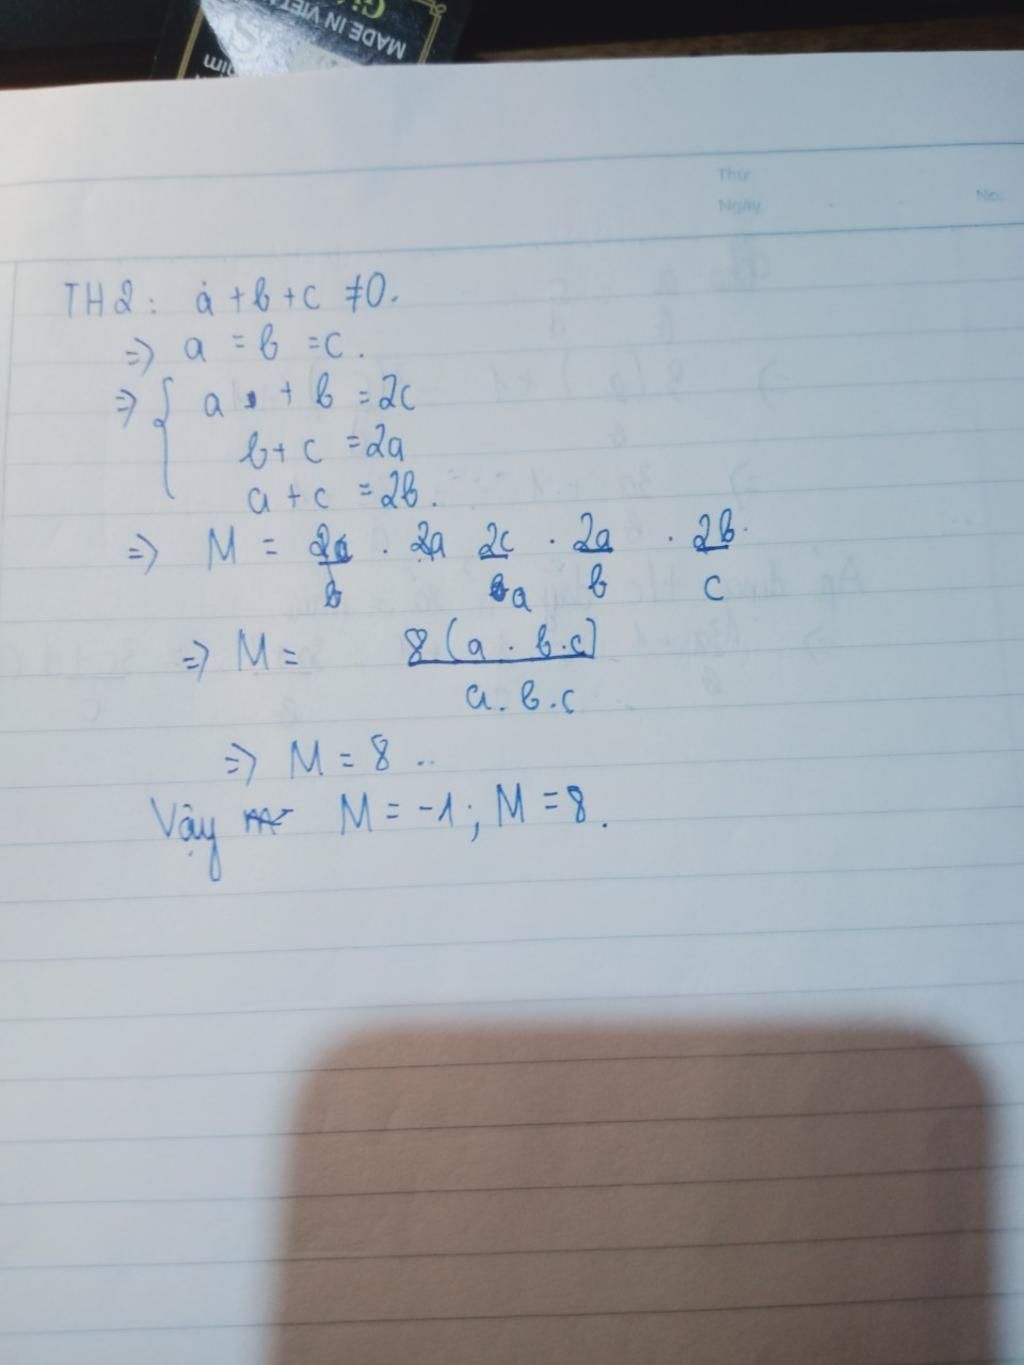 MADE IN VIETNA
Thứ
Ngày
No.
TH2: a + b + c ≠ 0.
=> a = b = c.
=> { a + b = 2c
b + c = 2a
a + c = 2b.
=> M = . 2a 2c/a . 2a/b . 2b/c
=> M = 8(a . b . c)/a . b . c
=> M = 8 ..
Vậy M = -1 ; M = 8.